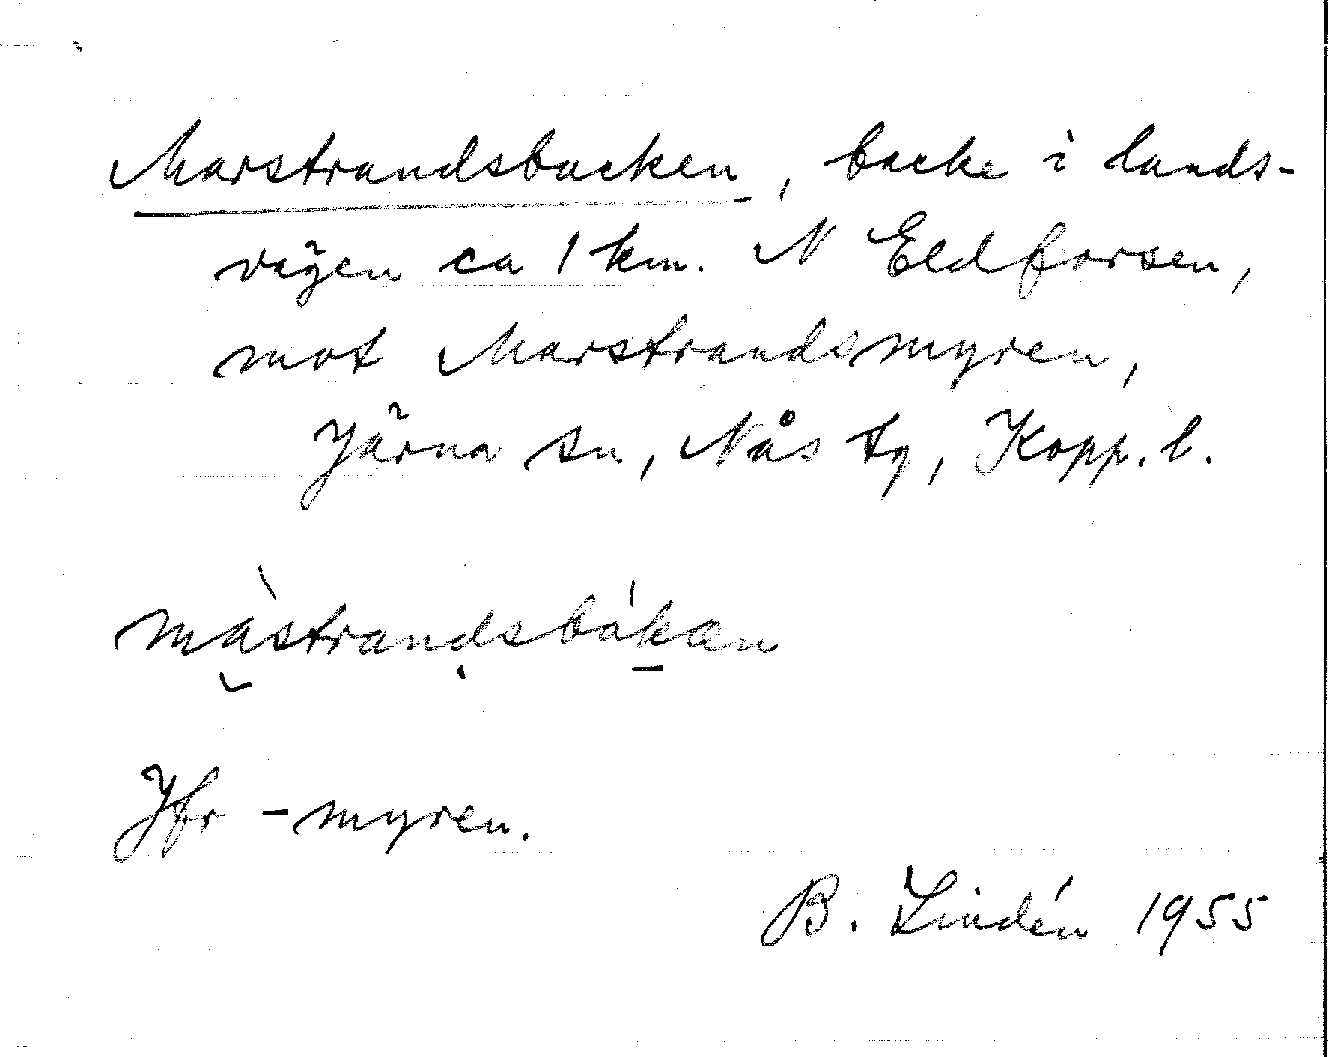 Marstrandsbacken, backe i lands-
vägen ca 1 km. N Eldforsen,
mot Marstrandsmyren,
Järna sn, Nås tg, Kopp. l.
màstrandsbákæn
Jfr -myren.
B. Lindén 1955